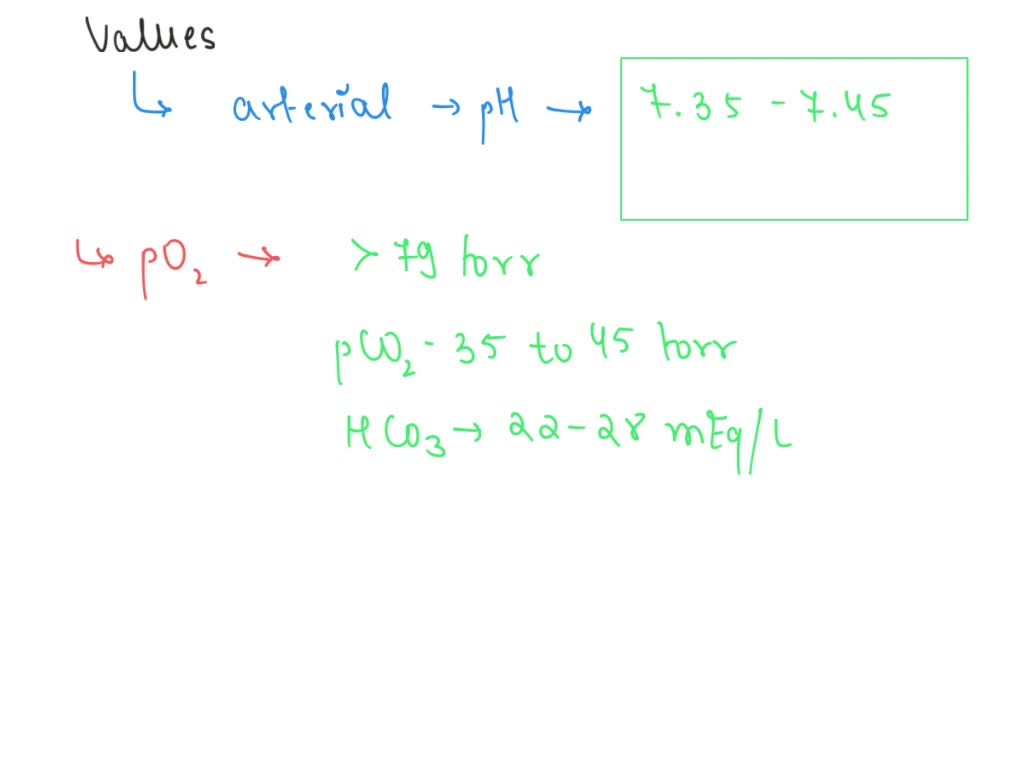 Values
↳ arterial → pH → 7.35 - 7.45
↳ pO₂ → > 79 torr
pCO₂ - 35 to 45 torr
HCO₃ → 22-28 mEq/L